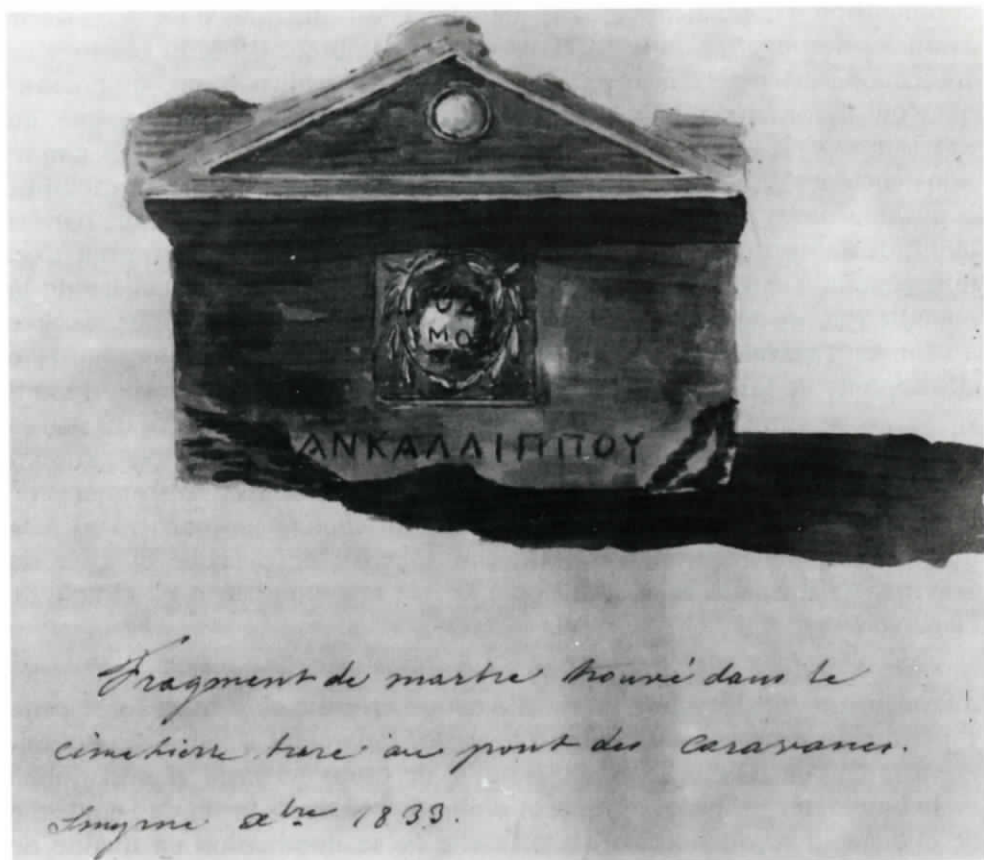 ΟΔ
ΜΟ
ΑΝΚΑΛΛΙΠΠΟΥ
Fragment de marbre trouvé dans le
cimetierre turc au pont des caravanes.
Smyrne xbre 1833.